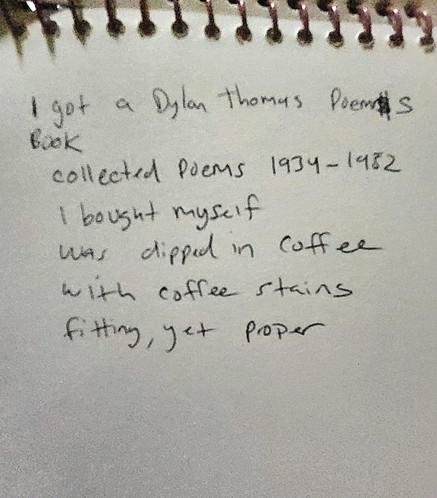 I got a Dylan Thomas Poems
Book
collected Poems 1934-1952
I bought myself
was dipped in coffee
with coffee stains
fitting, yet proper